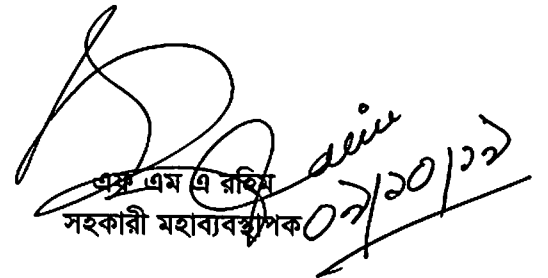 এফ এম এ রহিম
সহকারী মহাব্যবস্থাপক
০২/১০/১১